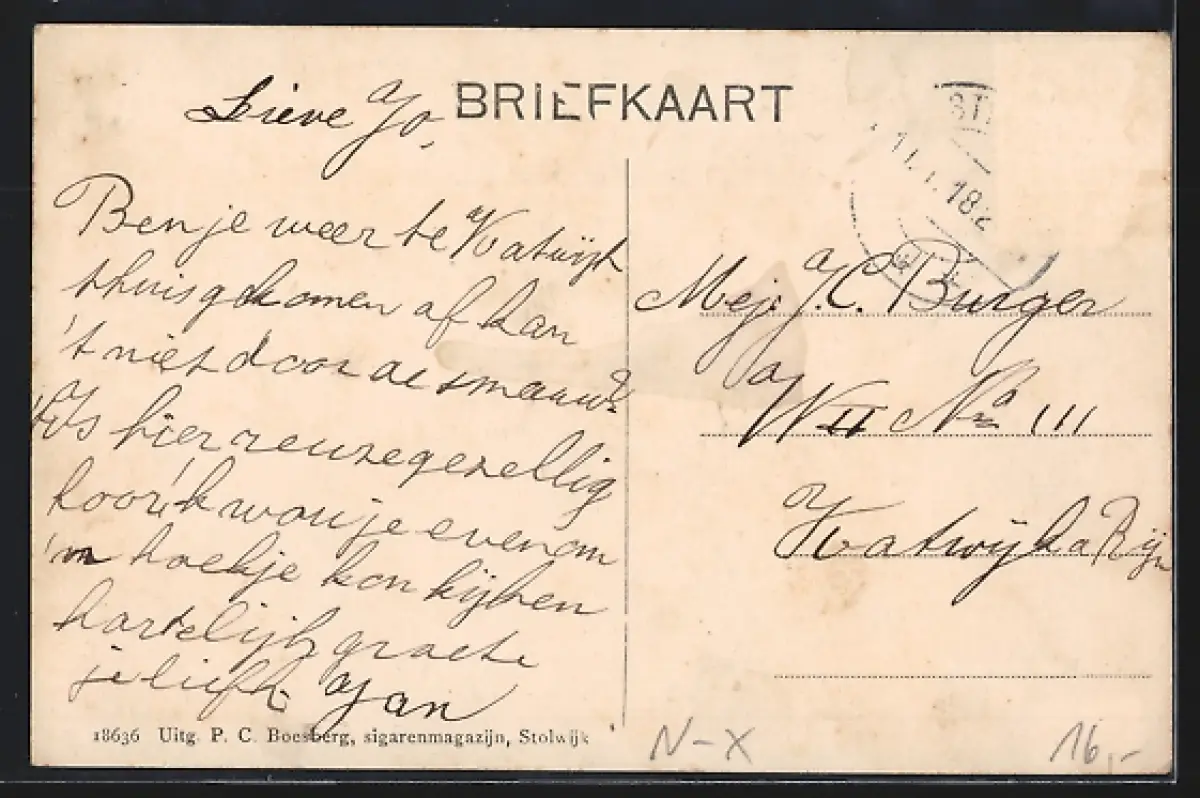 BRIEFKAART
Lieve Jo,
Ben je weer te Katwijk
thuisgekomen of kan
't niet door de sneeuw?
't Is hier reuzegezellig
hoor 'k wou je even om
'n hoekje kon kijken
hartelijk groete
je liefh. Jan
11.1.18
Mej. J. C. Burger
W II No 111
Katwijk a Rijn
18636 Uitg. P. C. Boesberg, sigarenmagazijn, Stolwijk
N-X
16,-